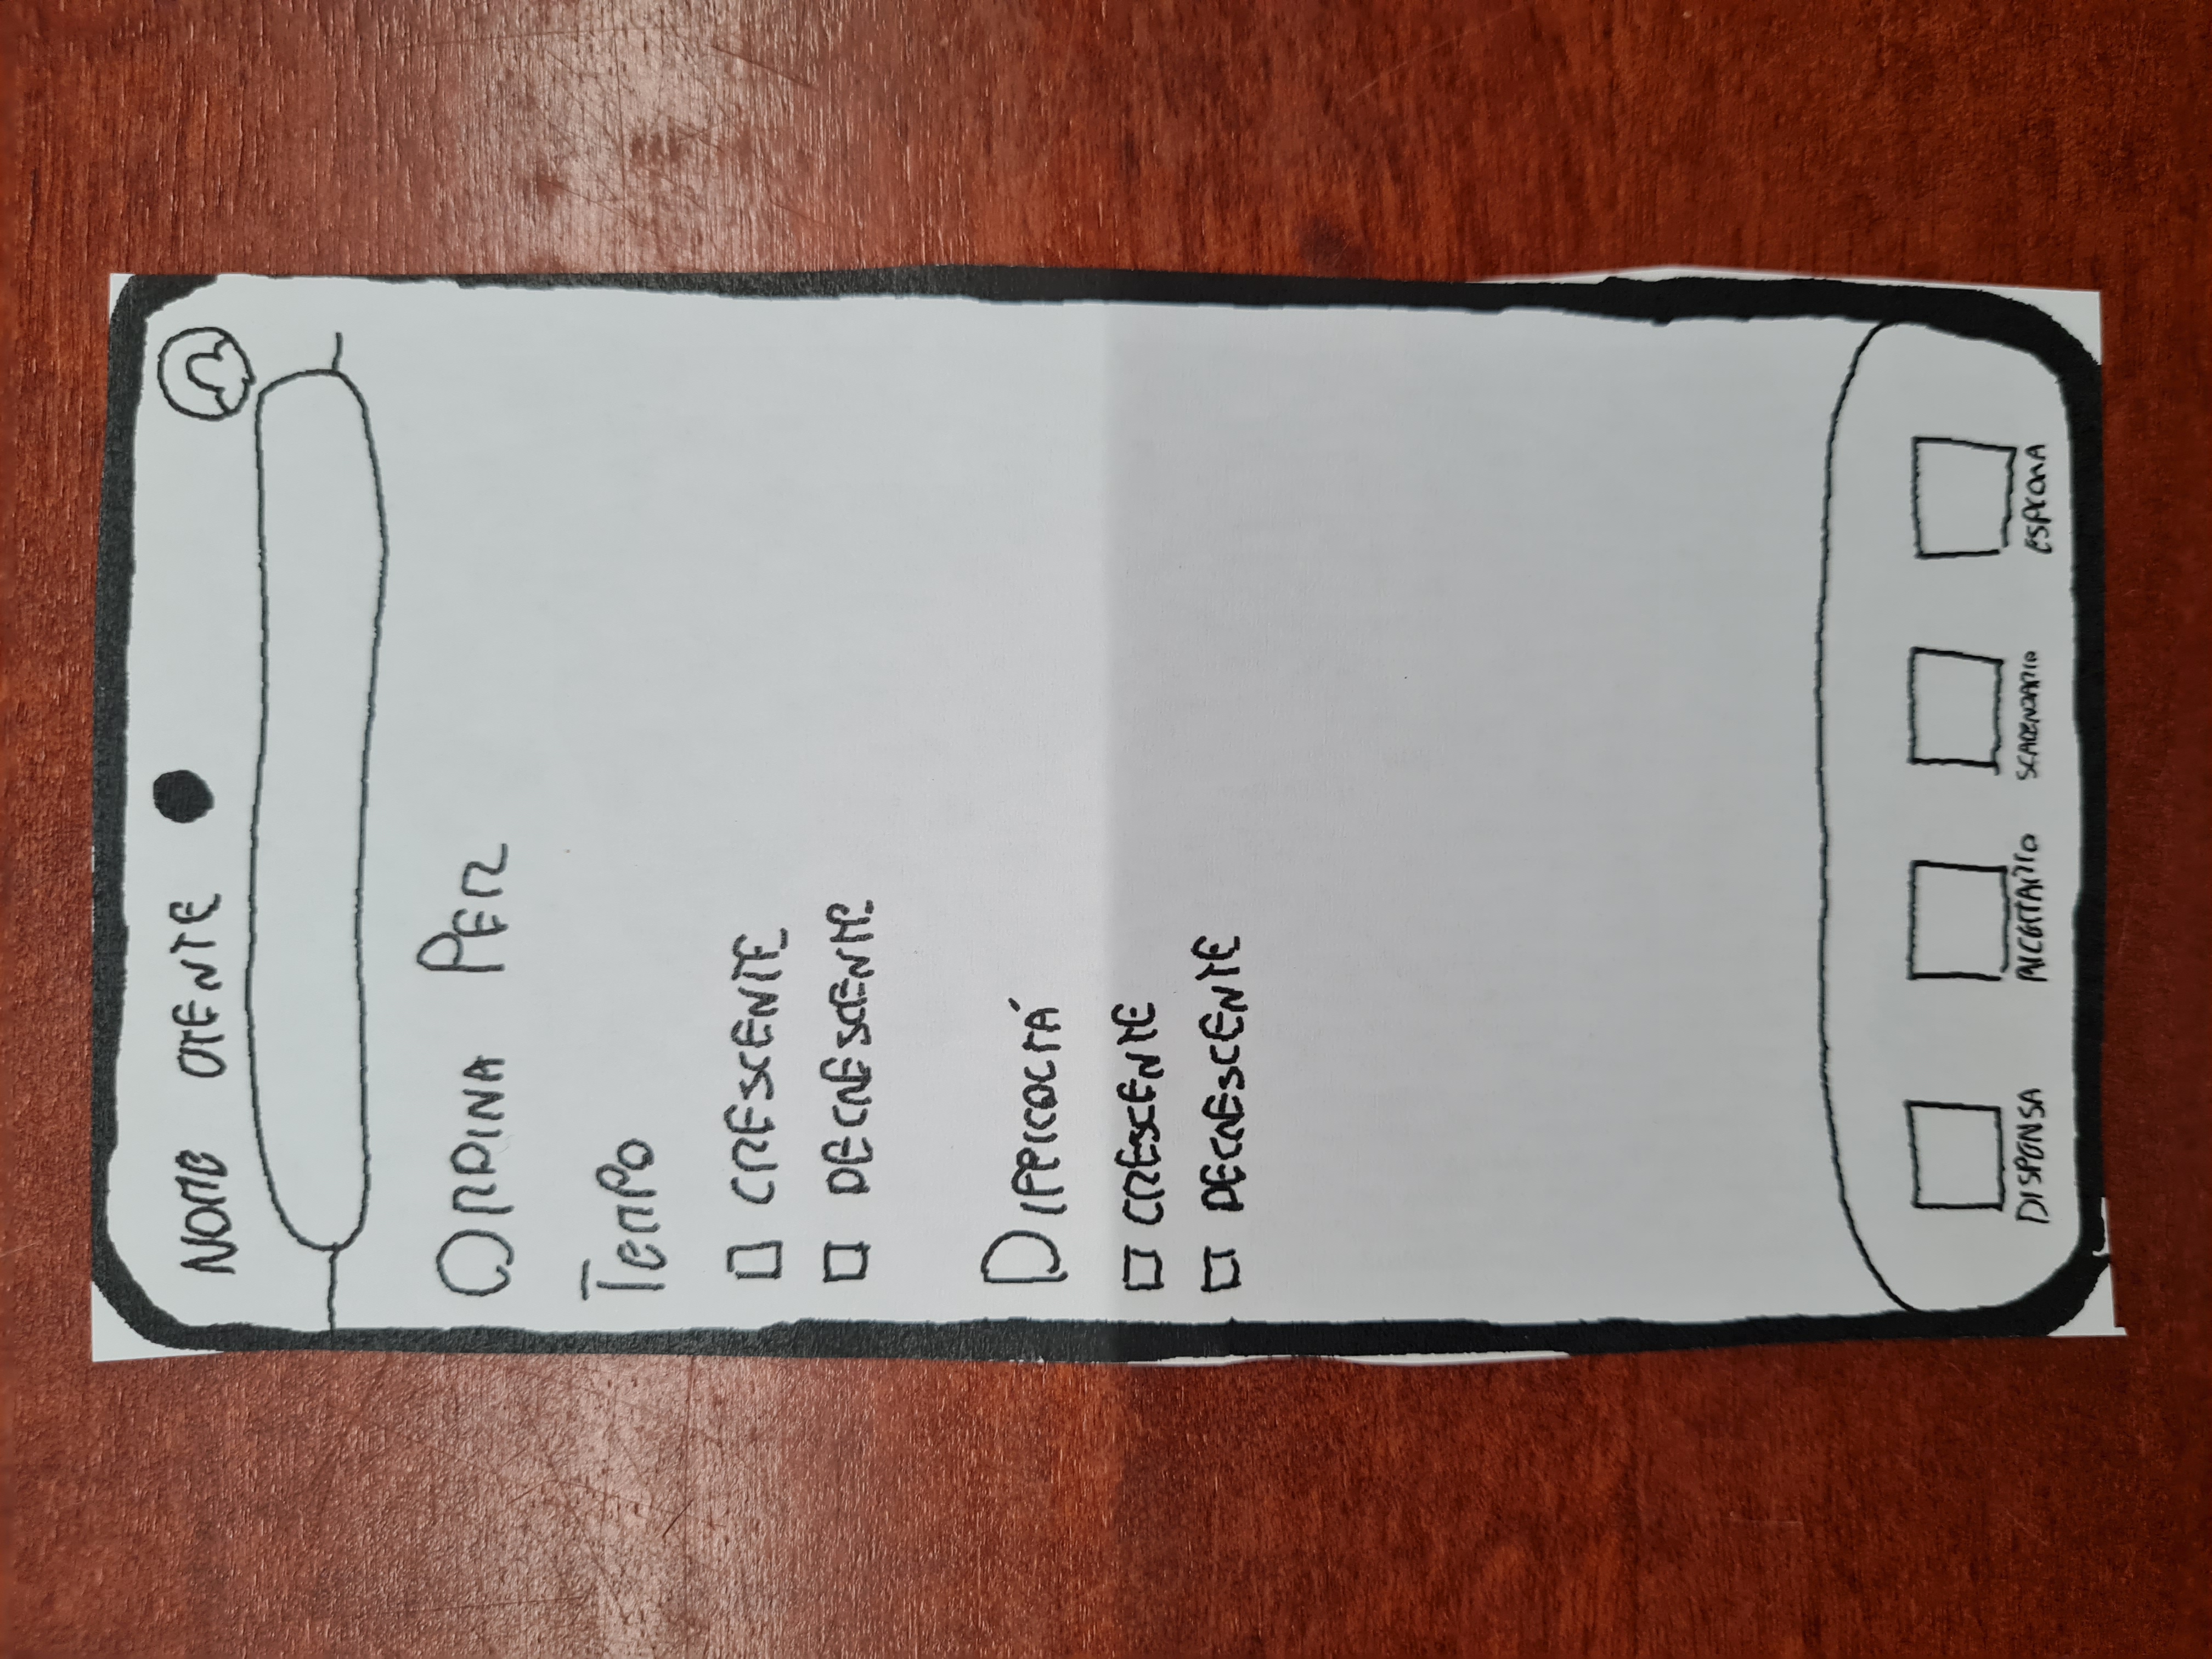 NOME UTENTE
ORDINA PER
TEMPO
CRESCENTE
DECRESCENTE
DIFFICOLTÁ
CRESCENTE
DECRESCENTE
DISPENSA RICETTARIO SCADENZARIO ESPLORA